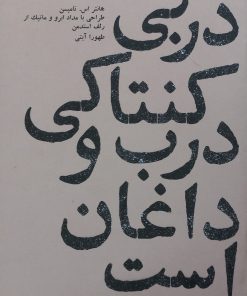 دربی
هانتر اس. تامپسن
طراحی با مداد ابرو و ماتیک از
رلف استدمن
طهورا آیتی
کنتاکی
درب و
داغان
است